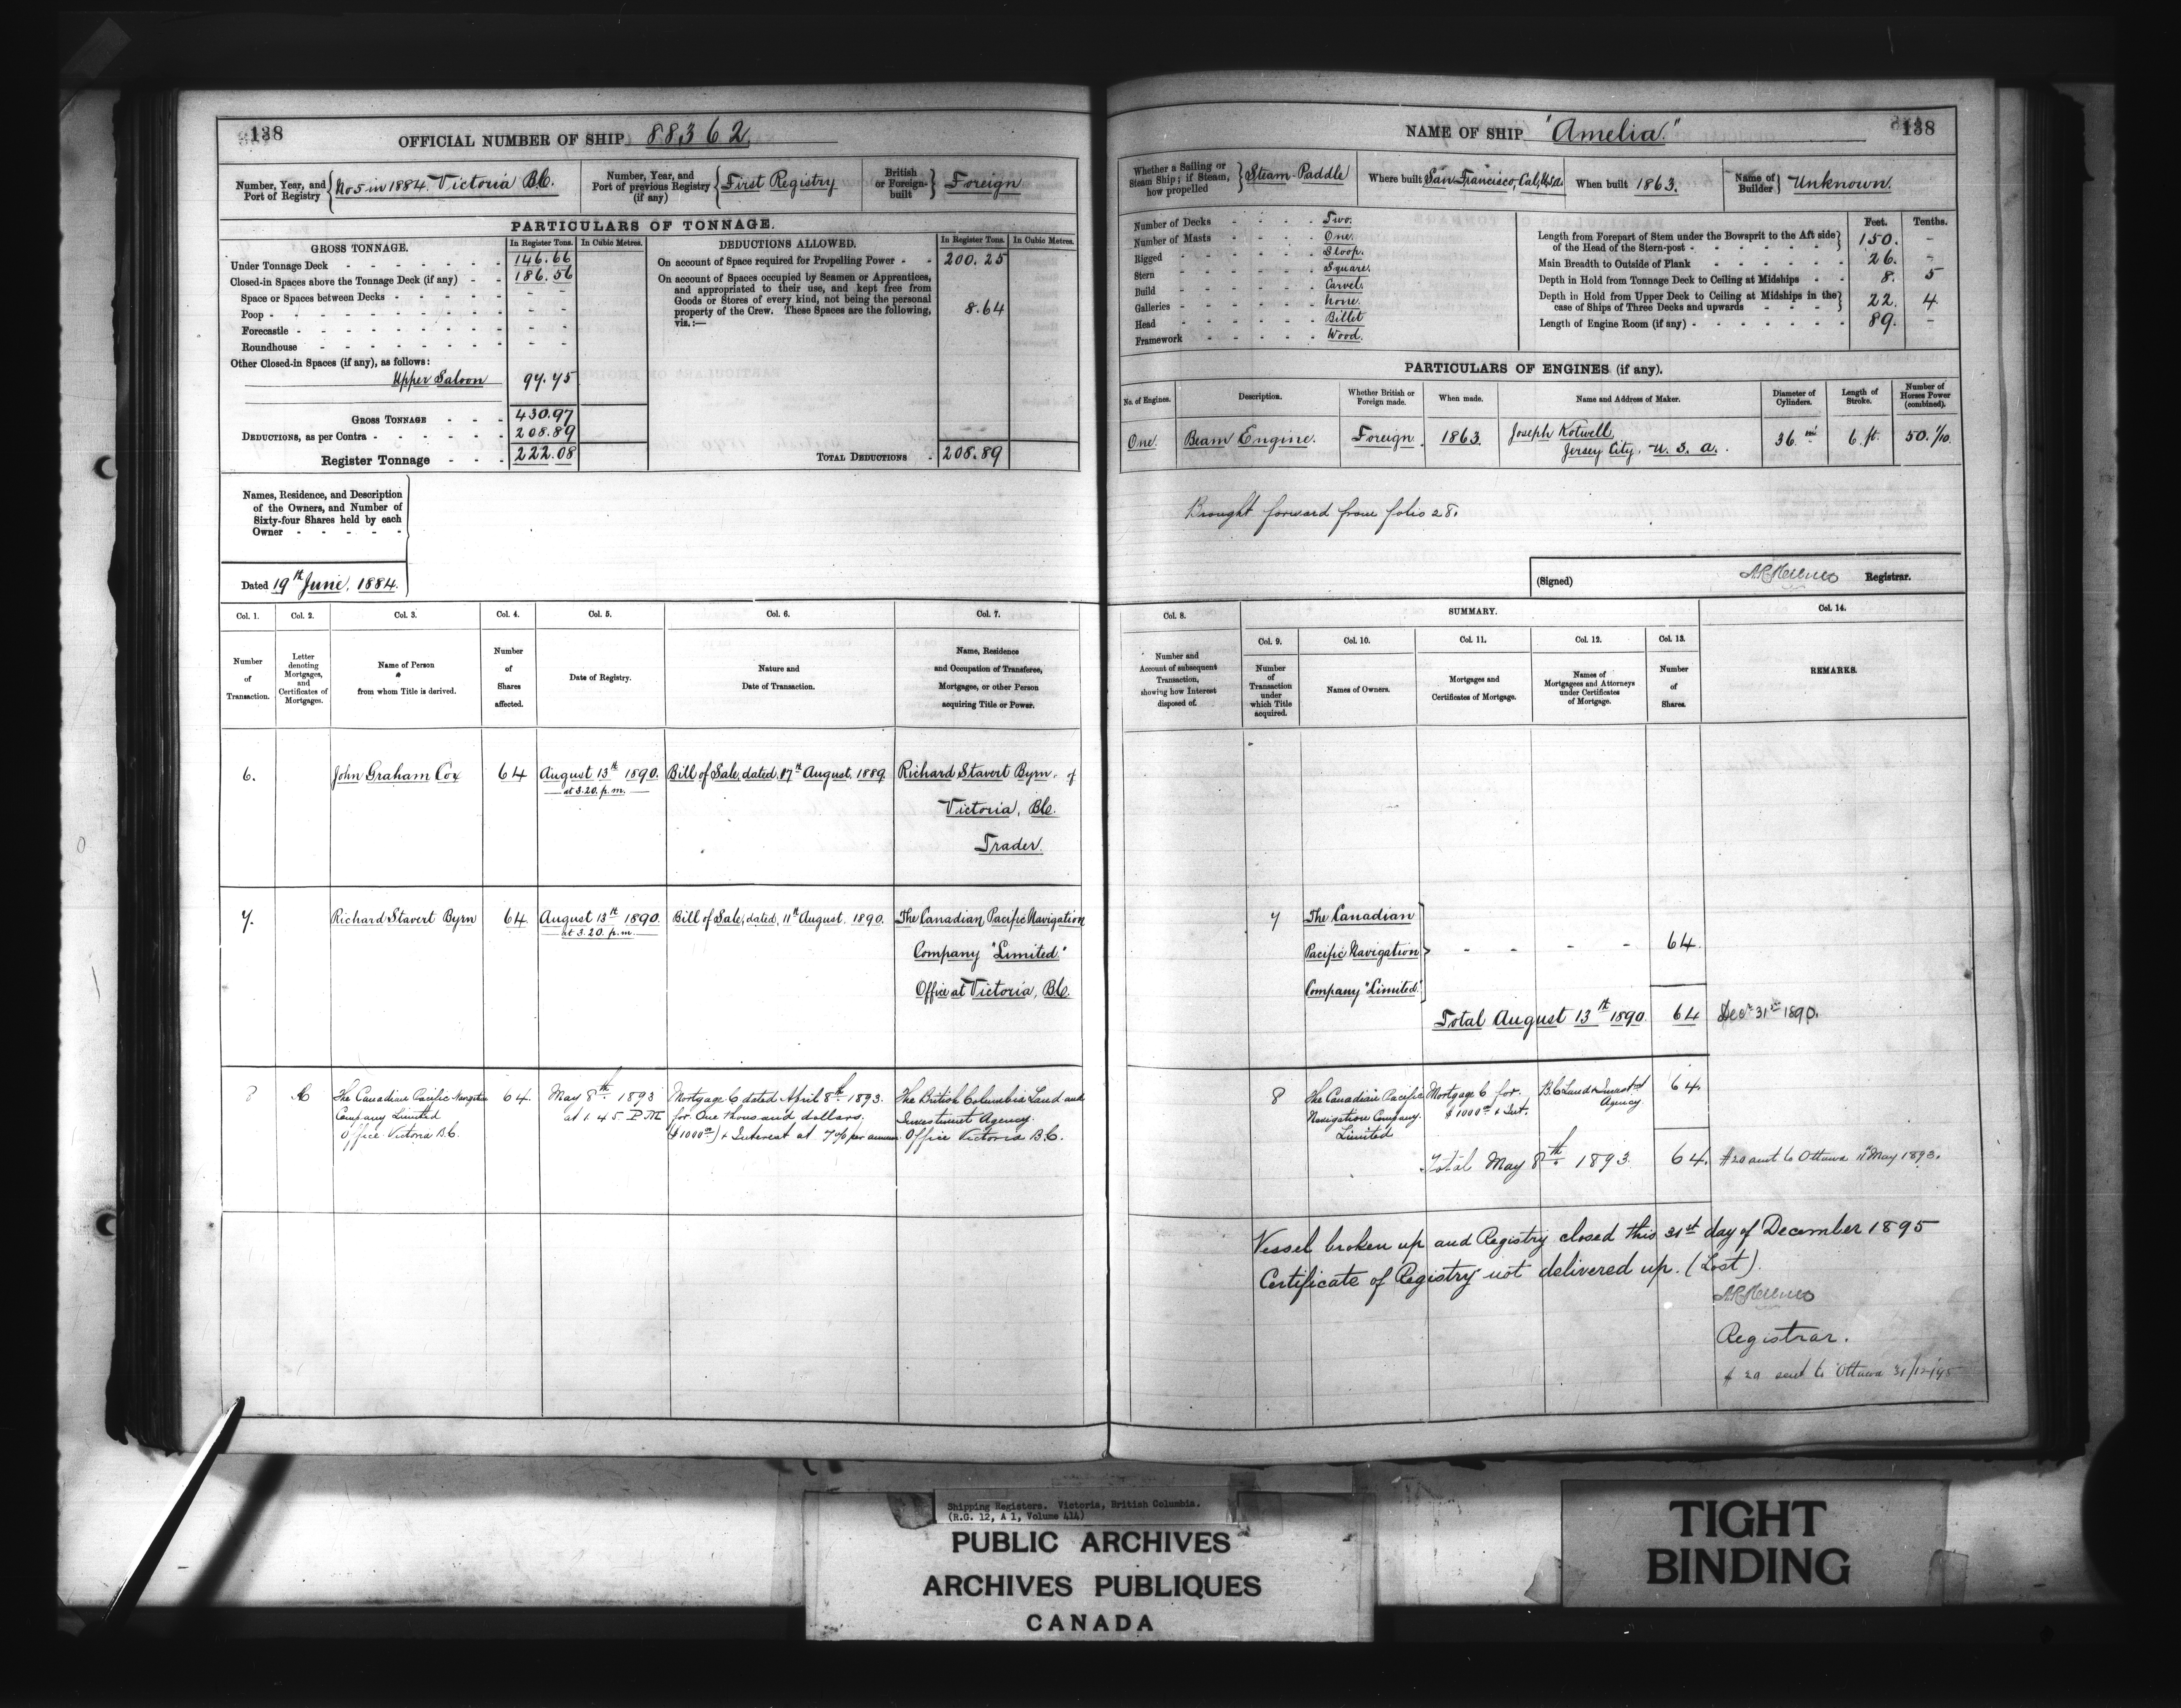 138
OFFICIAL NUMBER OF SHIP 88362
Number, Year, and Port of Registry No 5 in 1884. Victoria B.C.
Number, Year, and Port of previous Registry (if any) First Registry
British or Foreign-built Foreign
PARTICULARS OF TONNAGE.
GROSS TONNAGE. In Register Tons. In Cubic Metres.
Under Tonnage Deck 146.66
Closed-in Spaces above the Tonnage Deck (if any) 186.56
Space or Spaces between Decks - -
Poop - -
Forecastle - -
Roundhouse - -
Other Closed-in Spaces (if any), as follows:
Upper Saloon 97.75
GROSS TONNAGE 430.97
DEDUCTIONS, as per Contra 208.89
Register Tonnage 222.08
DEDUCTIONS ALLOWED. In Register Tons. In Cubic Metres.
On account of Space required for Propelling Power 200.25
On account of Spaces occupied by Seamen or Apprentices,
and appropriated to their use, and kept free from
Goods or Stores of every kind, not being the personal
property of the Crew. These Spaces are the following, 8.64
viz.:—
TOTAL DEDUCTIONS 208.89
Names, Residence, and Description
of the Owners, and Number of
Sixty-four Shares held by each
Owner
Dated 19th June, 1884.
Col. 1. Col. 2. Col. 3. Col. 4. Col. 5. Col. 6. Col. 7.
Number of Transaction.
Letter denoting Mortgages, and Certificates of Mortgages.
Name of Person from whom Title is derived.
Number of Shares affected.
Date of Registry.
Nature and Date of Transaction.
Name, Residence and Occupation of Transferee, Mortgagee, or other Person acquiring Title or Power.
6. John Graham Cox 64 August 13th 1890. Bill of Sale, dated, 17th August, 1889 Richard Stavert Byrn, of
at 3.20. p.m.
Victoria, B.C.
Trader.
7. Richard Stavert Byrn 64. August 13th 1890. Bill of Sale, dated, 11th August, 1890. The Canadian Pacific Navigation
at 3.20. p.m.
Company "Limited."
Office at Victoria, B.C.
8 C The Canadian Pacific Navigation 64. May 8th 1893 Mortgage C, dated April 8th 1893. The British Columbia Land and
Company Limited at 1.45 P.M. for One thousand dollars. Investment Agency.
Office Victoria B.C. ($1000) + Interest at 7% per annum Office Victoria B.C.
138
NAME OF SHIP "Amelia."
Whether a Sailing or Steam Ship; if Steam, how propelled Steam-Paddle
Where built San Francisco, Cal, U.S.A.
When built 1863.
Name of Builder Unknown.
Number of Decks Two.
Number of Masts One.
Rigged Sloop.
Stern Square.
Build Carvel.
Galleries None.
Head Billet
Framework Wood.
Feet. Tenths.
Length from Forepart of Stem under the Bowsprit to the Aft side
of the Head of the Stern-post 150. -
Main Breadth to Outside of Plank 26. -
Depth in Hold from Tonnage Deck to Ceiling at Midships 8. 5
Depth in Hold from Upper Deck to Ceiling at Midships in the
case of Ships of Three Decks and upwards 22. 4
Length of Engine Room (if any) 89. -
PARTICULARS OF ENGINES (if any).
No. of Engines. Description. Whether British or Foreign made. When made. Name and Address of Maker. Diameter of Cylinders. Length of Stroke. Number of Horses Power (combined).
One. Beam Engine. Foreign. 1863. Joseph Kotwell, 36. in 6. ft. 50. 1/10.
Jersey City, U. S. A.
Brought forward from folio 28.
(Signed) Registrar.
Col. 8. SUMMARY. Col. 14.
Col. 9. Col. 10. Col. 11. Col. 12. Col. 13.
Number and Account of subsequent Transaction, showing how Interest disposed of.
Number of Transaction under which Title acquired.
Names of Owners.
Mortgages and Certificates of Mortgage.
Names of Mortgagees and Attorneys under Certificates of Mortgage.
Number of Shares.
REMARKS.
7 The Canadian
Pacific Navigation - - - - 64.
Company "Limited."
Total August 13th 1890. 64 Decr 31st 1890.
8 The Canadian Pacific Mortgage C for B.C. Land & Investmt 64.
Navigation Company $1000 + Int. Agency
Limited
Total May 8th 1893. 64. #20 sent to Ottawa 11th May 1893.
Vessel broken up and Registry closed this 31st day of December 1895
Certificate of Registry not delivered up. (Lost).
Registrar.
# 20 sent to Ottawa 31/12/95
Shipping Registers. Victoria, British Columbia.
(R.G. 12, A 1, Volume 414)
PUBLIC ARCHIVES
ARCHIVES PUBLIQUES
CANADA
TIGHT
BINDING